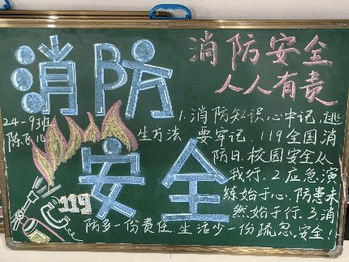 消防
安全
消防安全
人人有责
24-93班
陈
1.消防知识心中记,逃
生方法 要牢记.119全国消
防日.校园安全从
我行.2.应急演
练始于心,防患未
然始于行.3.消
防多一份责任,生活少一份疏忽.安全!
119